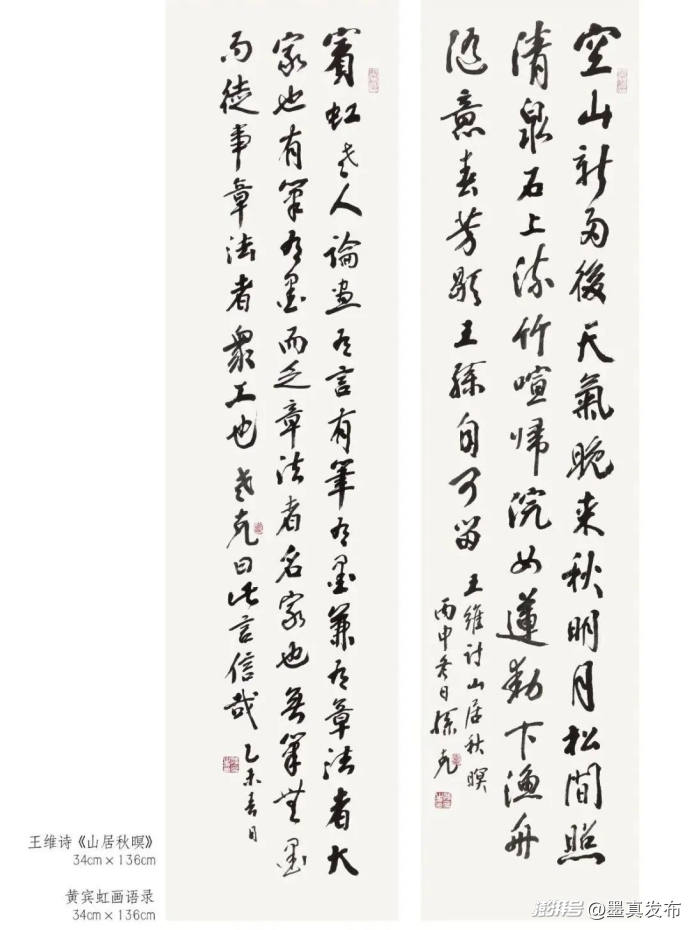 空山新雨後天氣晚来秋明月松間照
清泉石上流竹喧歸浣女蓮動下漁舟
隨意春芳歇王孫自可留
王維詩山居秋暝
丙申冬日孫克
賓虹老人論畫有言有筆有墨兼有章法者大
家也有筆有墨而乏章法者名家也無筆無墨
而徒事章法者衆工也老克曰此言信哉乙未春日
王维诗《山居秋暝》
34cm×136cm
黄宾虹画语录
34cm×136cm
澎湃号@墨真发布